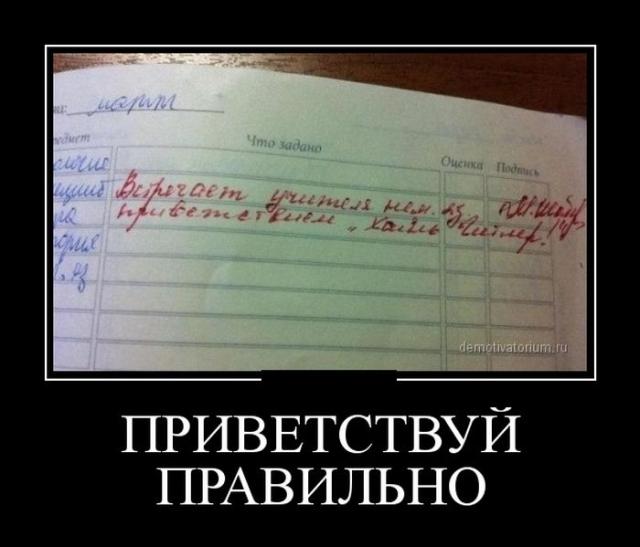 март
Что задано
Оценка
Подпись
Встречает учителя нем. яз
приветствием „Хайль Гитлер!"
demotivatorium.ru
ПРИВЕТСТВУЙ
ПРАВИЛЬНО